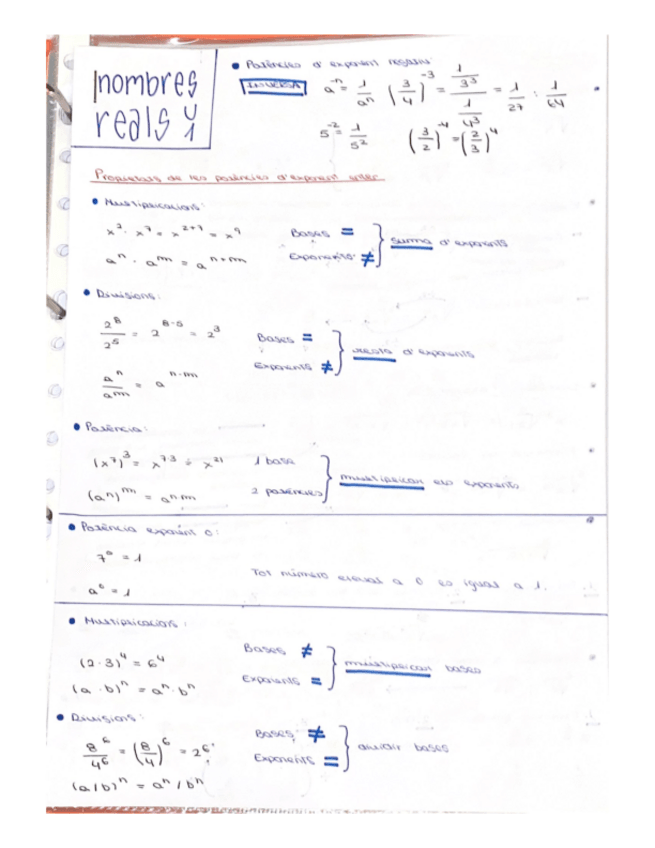 Nombres
reals U1
• Potències d'exponent negatiu
INVERSA a^-n = 1/a^n (3/4)^-3 = (1/3^3)/(1/4^3) = 1/27 : 1/64
5^-2 = 1/5^2 (3/2)^-4 = (2/3)^4
Propietats de les potències d'exponent enter
• Multiplicacions:
x^2 · x^7 = x^2+7 = x^9
a^n · a^m = a^n+m
Bases =
Exponents ≠
suma d'exponents
• Divisions:
2^8/2^5 = 2^8-5 = 2^3
a^n/a^m = a^n-m
Bases =
Exponents ≠
resta d'exponents
• Potència:
(x^7)^3 = x^7·3 = x^21
(a^n)^m = a^n·m
1 base
2 potències
multiplicar els exponents
• Potència exponent 0:
7^0 = 1
a^0 = 1
Tot número elevat a 0 és igual a 1.
• Multiplicacions:
(2·3)^4 = 6^4
(a·b)^n = a^n · b^n
Bases ≠
Exponents =
multiplicar bases
• Divisions:
8^6/4^6 = (8/4)^6 = 2^6
(a/b)^n = a^n / b^n
Bases ≠
Exponents =
dividir bases